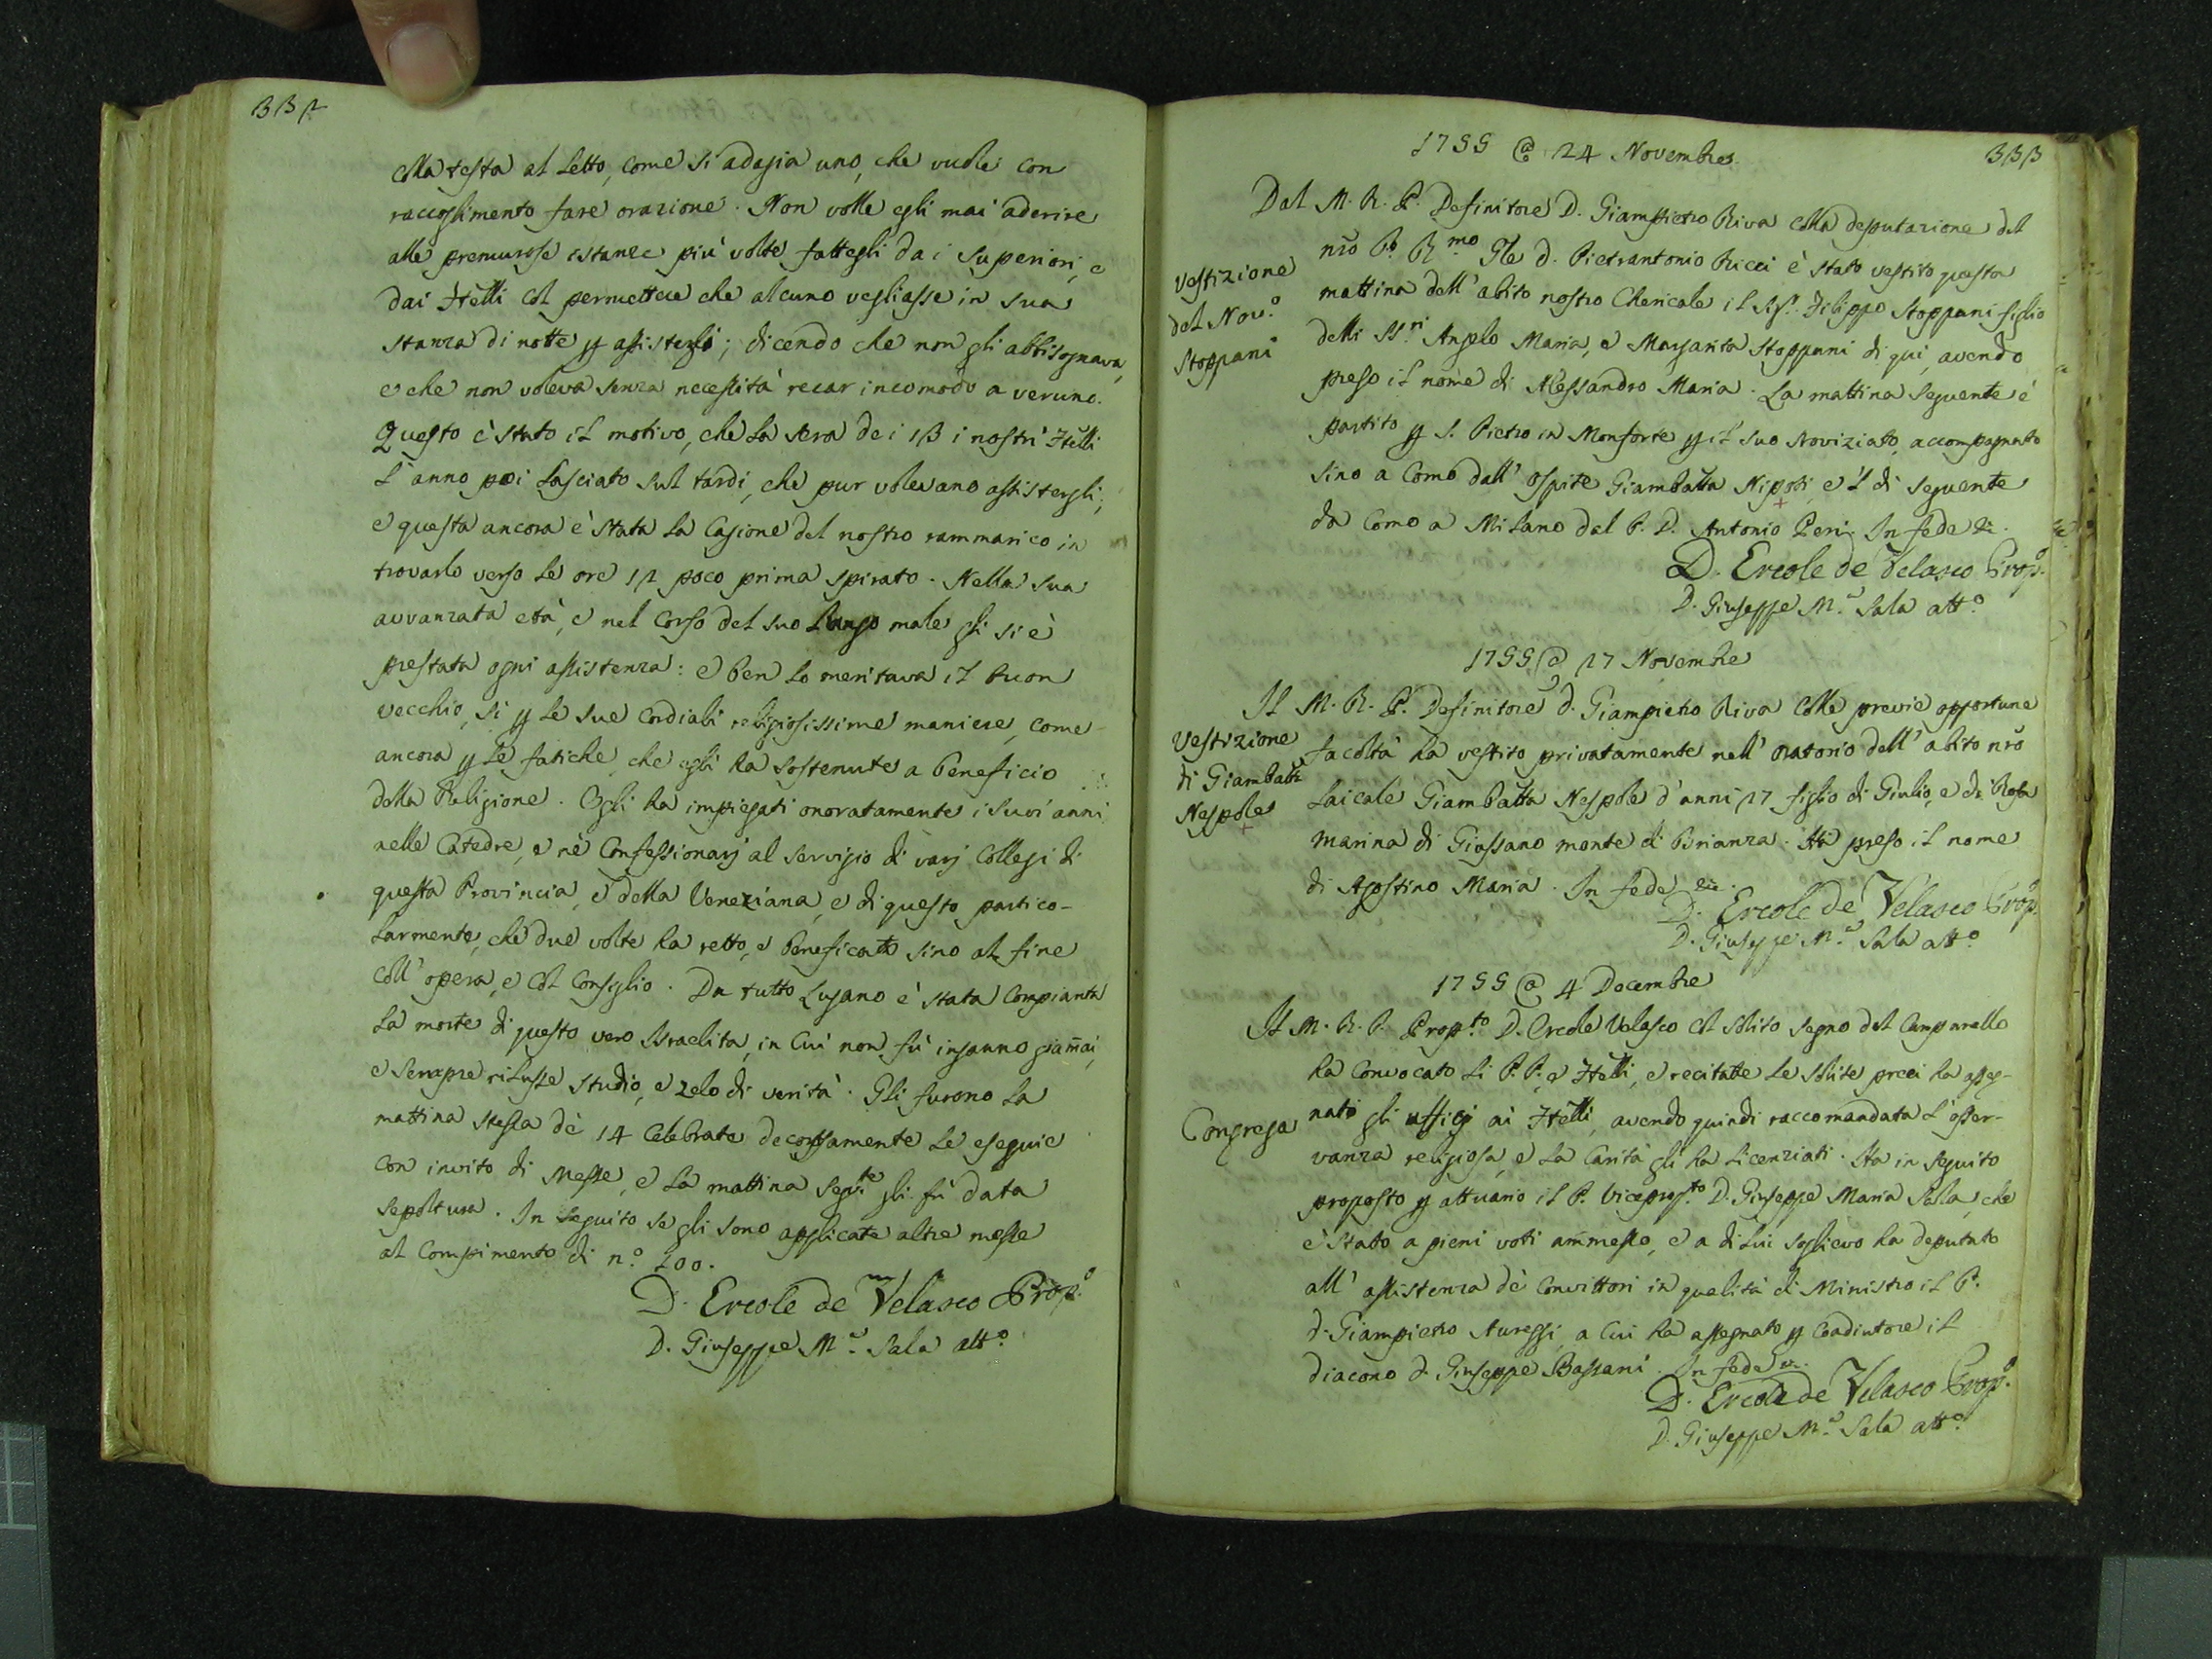 332
colla testa al letto, come si adagia uno, che vuole con
raccoglimento fare orazione. Non volle egli mai aderire
alle premurose istanze più volte fattegli dai Superiori, e
dai Ftelli col permettere che alcuno vegliasse in sua
stanza di notte p assisterlo; dicendo che non gli abbisognava,
e che non voleva senza necessità recar incomodo a veruno.
Questo è stato il motivo, che la sera dei 13 i nostri Ftelli
l'anno poi lasciato sul tardi, che pur volevano assistergli;
e questa ancora è stata la cagione del nostro rammarico in
trovarlo verso le ore 12 poco prima spirato. Nella sua
avvanzata età, e nel corso del suo lungo male gli si è
prestata ogni assistenza: e ben lo meritava il buon
vecchio, sì p le sue cordiali religiosissime maniere, come
ancora p le fatiche, che egli ha sostenute a beneficio
della Religione. Egli ha impiegati onoratamente i suoi anni
nelle Catedre, e nè Confessionarj al servigio di varj Collegi di
questa Provincia, e della Veneziana, e di questo partico-
larmente, che due volte ha retto, e beneficato sino al fine
coll'opera, e col consiglio. Da tutto Lugano è stata compianta
la morte di questo vero Israelita, in cui non fù inganno giam̃ai,
e sempre rilusse studio, e zelo di verità. Gli furono la
mattina stessa dè 14 celebrate decorosamente le esequie
con invito di Messe, e la mattina segu.te gli fù data
sepoltura. In seguito se gli sono applicate altre messe
al compimento di n.o 100.
D. Ercole de Velasco Prop.o
D. Giuseppe M.a Sala att.o
1755 @ 24 Novembre
333
Dal M. R. P. Definitore D. Giampietro Riva colla deputazione del
nr̃o P. R.mo Gle D. Pietrantonio Ricci è stato vestito questa
mattina dell'abito nostro Chericale il Sig.r Filippo Stoppani figlio
delli SS.ri Angelo Maria, e Margarita Stoppani di qui, avendo
preso il nome di Alessandro Maria. La mattina seguente è
partito p S. Pietro in Monforte p il suo Noviziato, accompagnato
sino a Como dall'Ospite Giambatta Nipoti, e 'l dì seguente
da Como a Milano dal P. D. Antonio Peri. In fede &c.
vestizione
del Nov.o
Stoppani
D. Ercole de Velasco Prop.o
D. Giuseppe M.a Sala att.o
1755 @ 27 Novembre
Il M. R. P. Definitore D. Giampietro Riva colle previe opportune
facoltà ha vestito privatamente nell'Oratorio dell'abito nr̃o
Laicale Giambatta Nespole d'anni 27 figlio di Giulio, e di Rosa
Marina di Giussano monte di Brianza. Ha preso il nome
di Agostino Maria. In fede &c.
Vestizione
di Giambatta
Nespole
D. Ercole de Velasco Prop.o
D. Giuseppe M.a Sala att.o
1755 @ 4 Decembre
Il M. R. P. Prop.to D. Ercole Velasco col solito segno del Campanello
ha convocato li P.P. e Ftelli, e recitatte le solite preci ha asseg-
nati gli ufficj ai Ftelli, avendo quindi raccomandata l'osser-
vanza religiosa, e la carità gli ha licenziati. Ha in seguito
proposto p attuario il P. Viceprop.to D. Giuseppe Maria Sala, che
è stato a pieni voti am̃messo, e a di lui sollievo ha deputato
all'assistenza dè Convittori in qualità di Ministro il P.
D. Giampietro Auressi, a cui ha assegnato p Coadiutore il
Diacono D. Giuseppe Bassani. In fede &c.
Congrega
D. Ercole de Velasco Prop.o
D. Giuseppe M.a Sala att.o